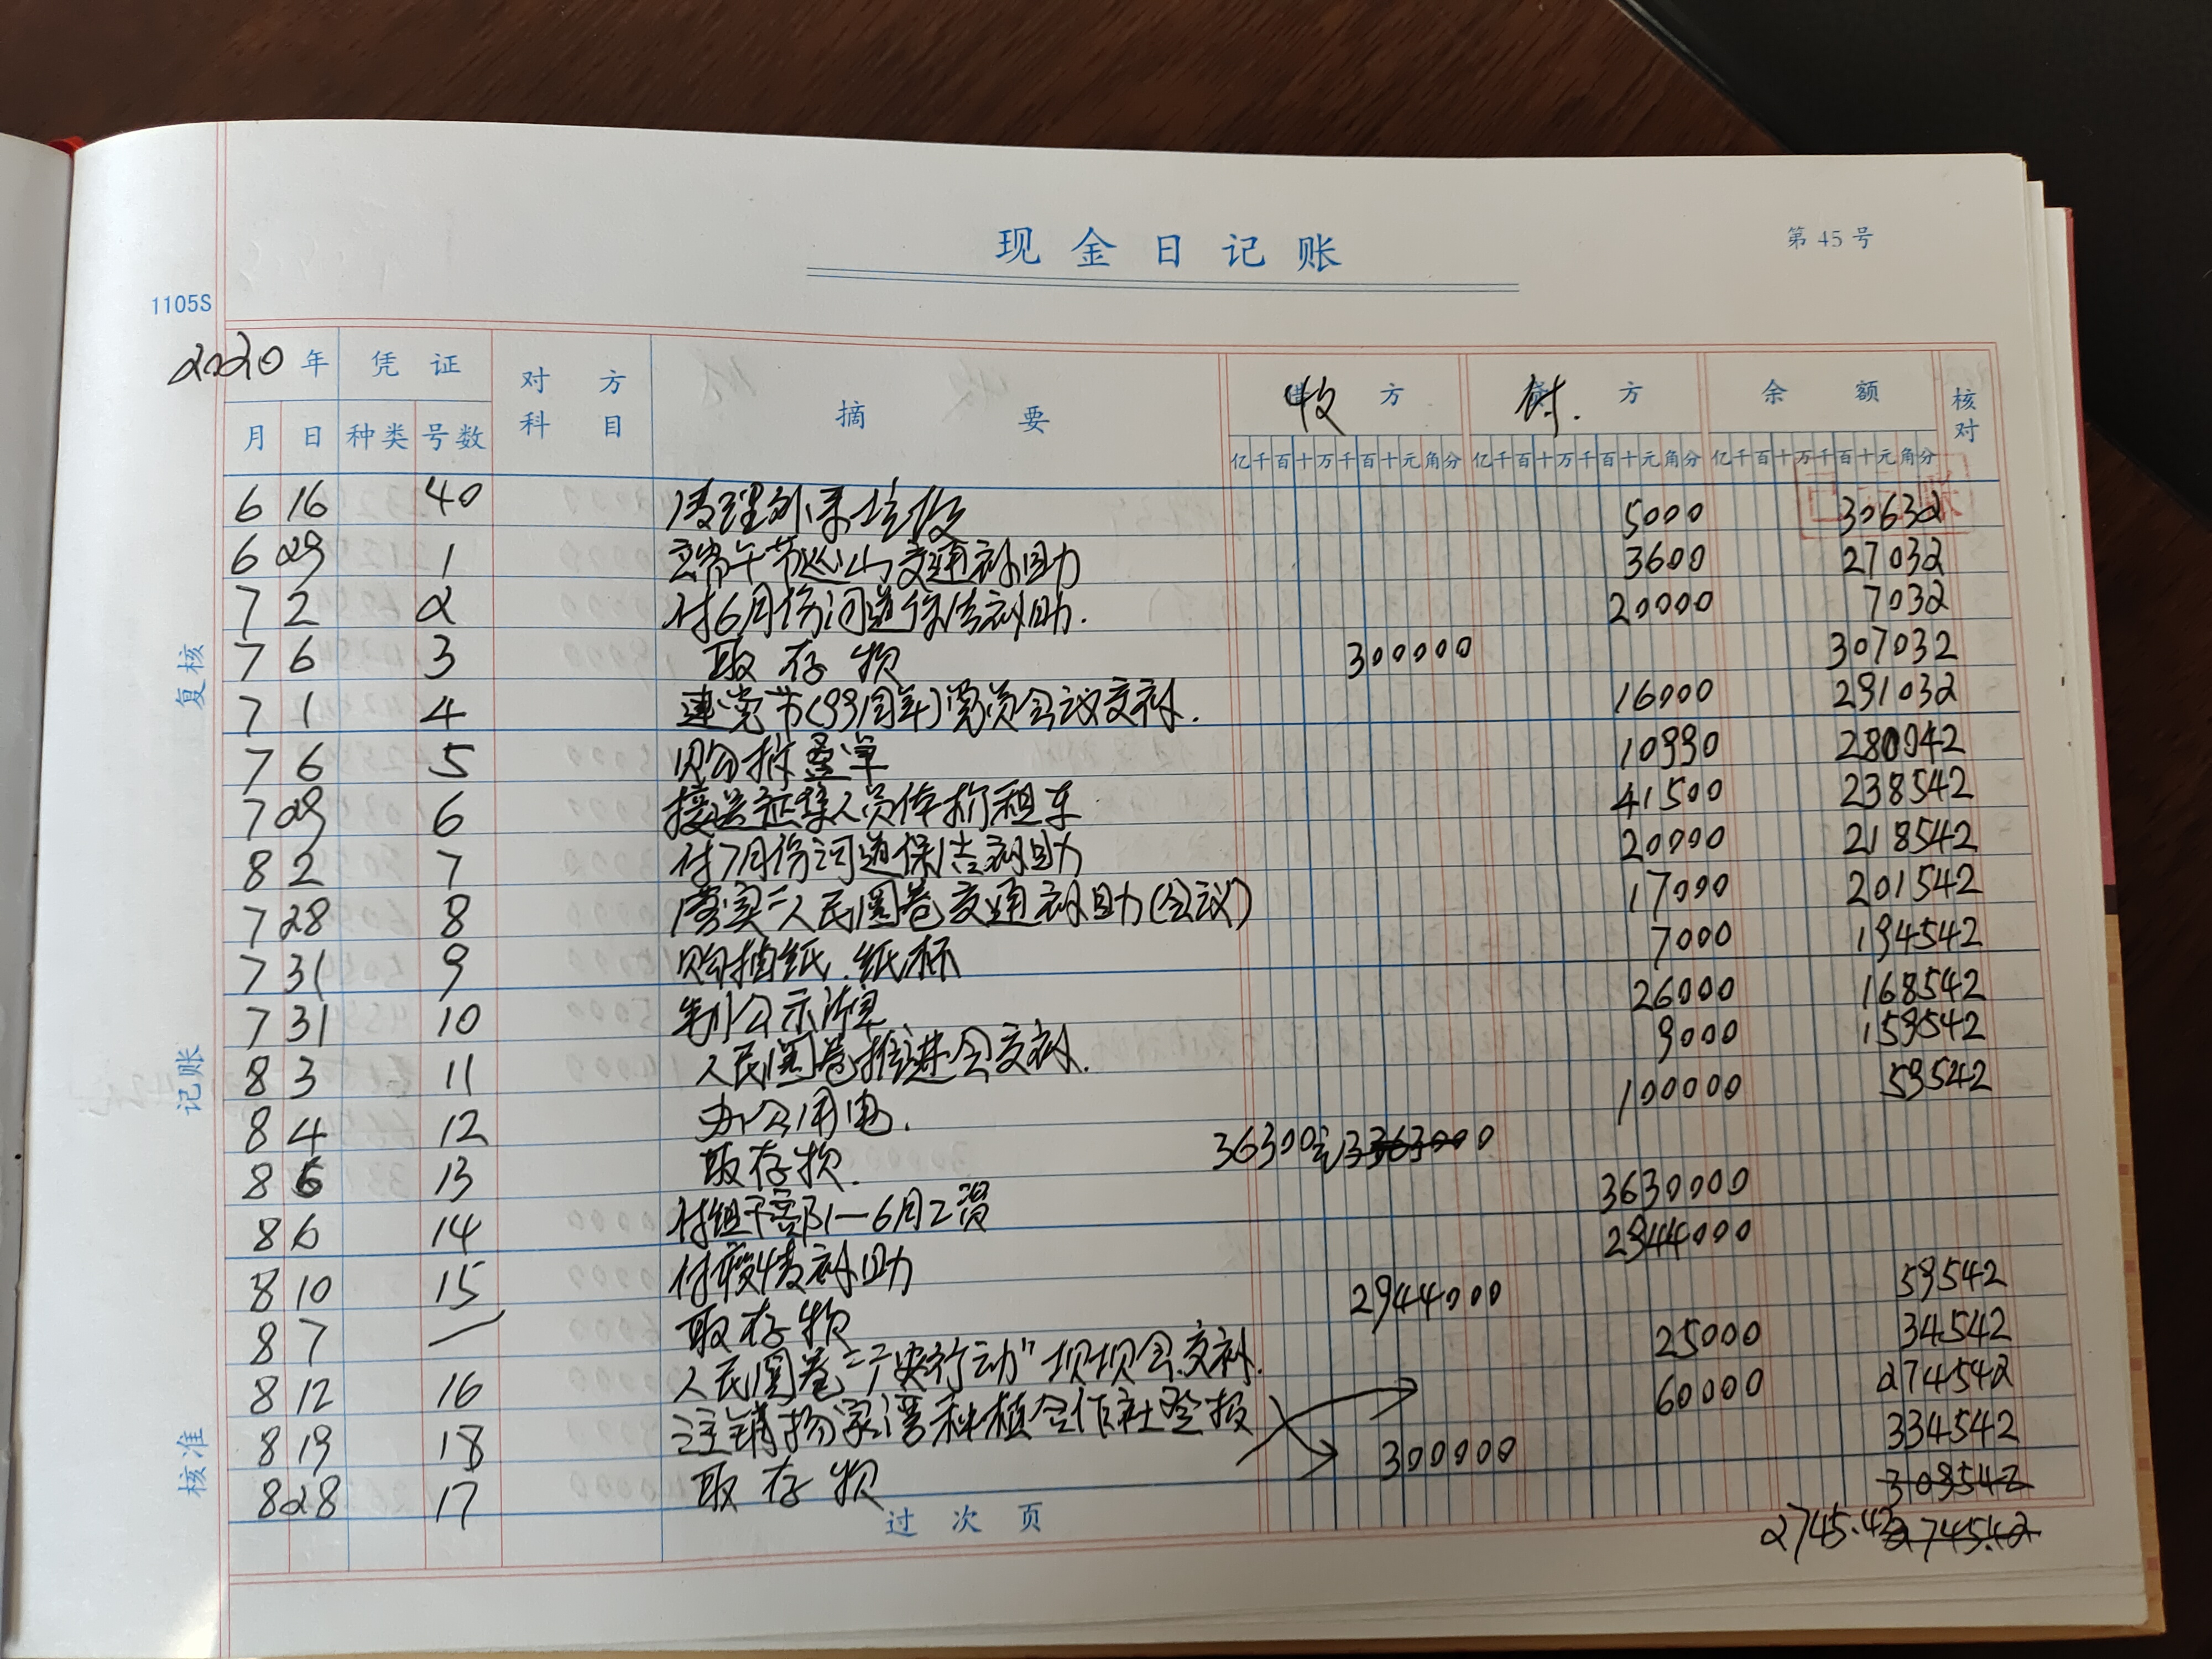 现金日记账
第 45 号
1105S
2020 年 凭证 对方科目 摘要 收 方 付. 方 余额 核对
月 日 种类 号数 亿千百十万千百十元角分 亿千百十万千百十元角分 亿千百十万千百十元角分
6 16 40 清理 5000 30632
6 29 1 端午节巡山交通补助 3600 27032
7 2 2 付6月份河道保洁补助. 20000 7032
7 6 3 取存款 300000 307032
7 1 4 建党节(99周年)党员会议交补. 16000 291032
7 6 5 购 单 10990 280042
7 29 6 接送 人员 租车 41500 238542
8 2 7 付7月份河道保洁补助 20000 218542
7 28 8 落实"人民阅卷交通补助(会议) 17000 201542
7 31 9 购抽纸.纸杯 7000 194542
7 31 10 制公示清单 26000 168542
8 3 11 人民阅卷推进会交补. 9000 159542
8 4 12 办公用电. 100000 59542
8 6 13 取存款. 36300元 3363000
8 6 14 付组干部1—6月工资 3630000
8 10 15 付 补助 2944000
8 7 — 取存款 2944000 59542
8 12 16 人民阅卷"三个 行动"坝坝会交补. 25000 34542
8 19 18 注销杨家湾种植合作社登报 60000 274542
8 28 17 取存款 300000 334542
309542
过次页 2745.42 2745.42
复核
记账
核准